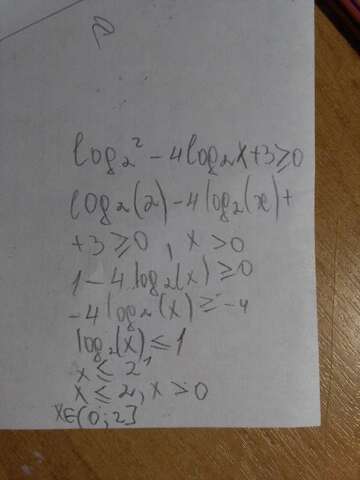 2
log₂² - 4log₂x+3≥0
log₂(2) - 4log₂(x)+
+3≥0, x>0
1-4log₂(x)≥0
-4log₂(x)≥-4
log₂(x)≤1
x≤2¹
x≤2, x>0
x∈(0;2]